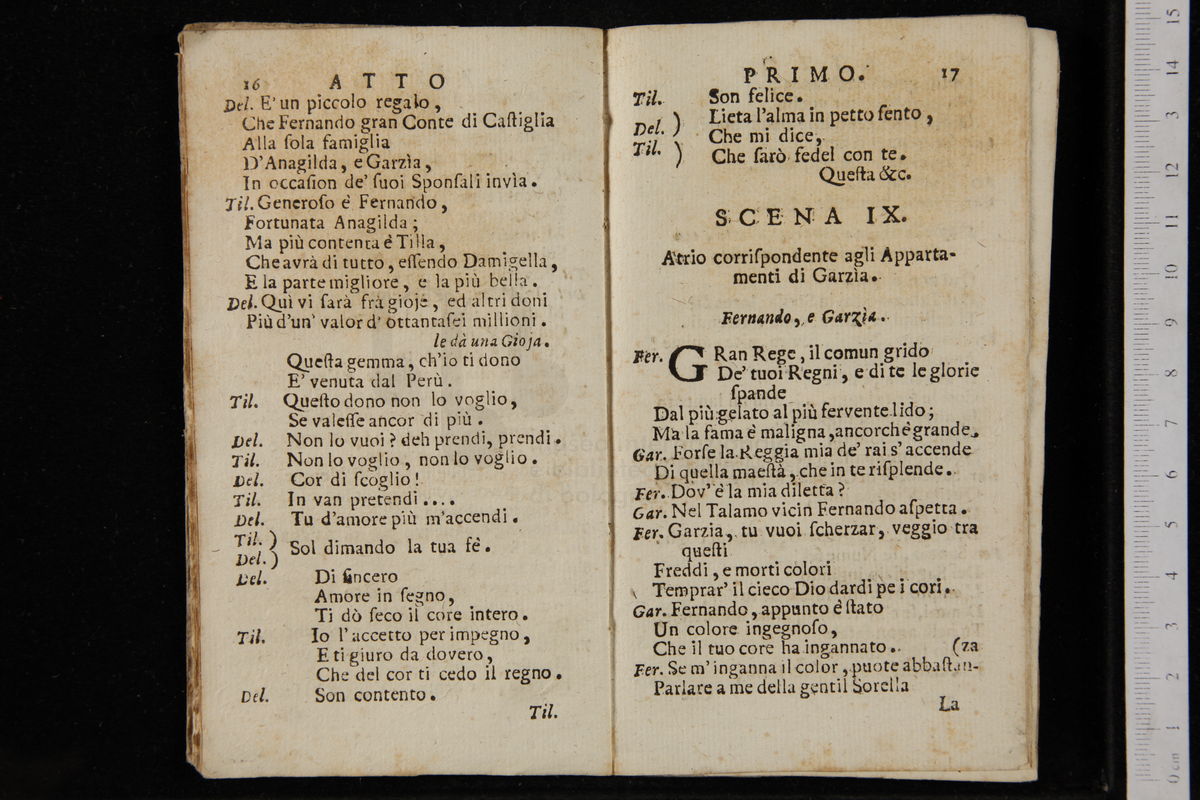 16 ATTO
Del. E' un piccolo regalo,
Che Fernando gran Conte di Caſtiglia
Alla ſola famiglia
D'Anagilda, e Garzìa,
In occaſion de' ſuoi Sponſali invia.
Til. Generoſo è Fernando,
Fortunata Anagilda;
Ma più contenta è Tilla,
Che avrà di tutto, eſſendo Damigella,
E la parte migliore, e la più bella.
Del. Quì vi ſarà frà gioje, ed altri doni
Più d'un' valor d' ottantaſei millioni.
le dà una Gioja.
Queſta gemma, ch'io ti dono
E' venuta dal Perù.
Til. Queſto dono non lo voglio,
Se valeſſe ancor di più.
Del. Non lo vuoi? deh prendi, prendi.
Til. Non lo voglio, non lo voglio.
Del. Cor di ſcoglio!
Til. In van pretendi....
Del. Tu d'amore più m'accendi.
Til. )
Del. ) Sol dimando la tua fè.
Del. Di ſincero
Amore in ſegno,
Ti dò ſeco il core intero.
Til. Io l'accetto per impegno,
E ti giuro da dovero,
Che del cor ti cedo il regno.
Del. Son contento.
Til.
PRIMO. 17
Til. Son felice.
Lieta l'alma in petto ſento,
Del. ) Che mi dice,
Til. ) Che ſarò fedel con te.
Queſta &c.
SCENA IX.
Atrio corriſpondente agli Apparta-
menti di Garzìa.
Fernando, e Garzìa.
Fer. GRan Rege, il comun grido
De' tuoi Regni, e di te le glorie
ſpande
Dal più gelato al più fervente lido;
Ma la fama è maligna, ancorchè grande.
Gar. Forſe la Reggia mia de' rai s'accende
Di quella maeſtà, che in te riſplende.
Fer. Dov' è la mia diletta?
Gar. Nel Talamo vicin Fernando aſpetta.
Fer. Garzia, tu vuoi ſcherzar, veggio tra
queſti
Freddi, e morti colori
Temprar' il cieco Dio dardi pe i cori.
Gar. Fernando, appunto è ſtato
Un colore ingegnoſo,
Che il tuo core ha ingannato. (za
Fer. Se m'inganna il color, puote abbaſtan-
Parlare a me della gentil Sorella
La
15
14
13
12
11
10
9
8
7
6
5
4
3
2
1
0 cm